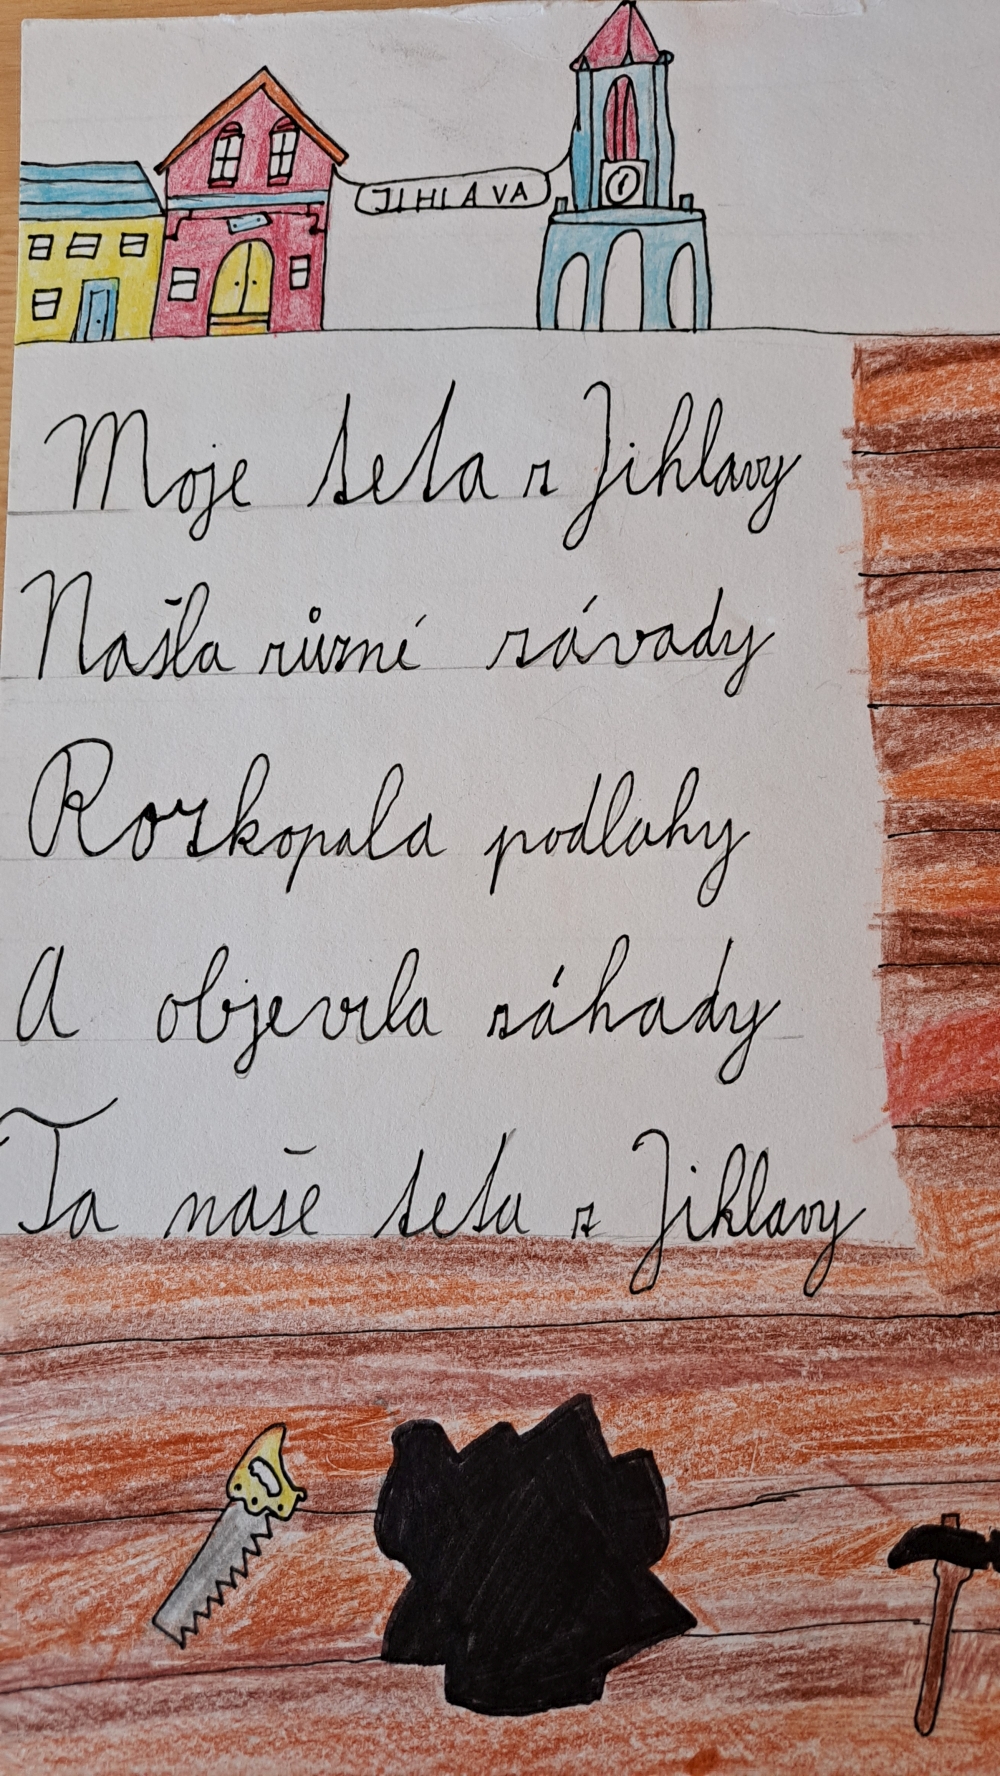 JIHLAVA
Moje teta z Jihlavy
Našla různé závady
Rozkopala podlahy
A objevila záhady
Ta naše teta z Jihlavy